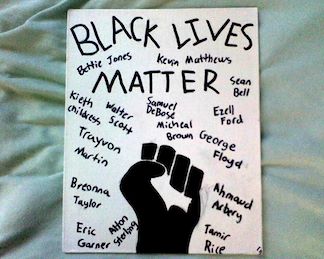 BLACK LIVES
Bettie Jones
Kevin Matthews
MATTER
Sean
Bell
Kieth
Childress
Walter
Scott
Samuel
DeBose
Ezell
Ford
Micheal
Brown
George
Floyd
Trayvon
Martin
Breonna
Taylor
Ahmaud
Arbery
Eric
Garner
Alton
Sterling
Tamir
Rice